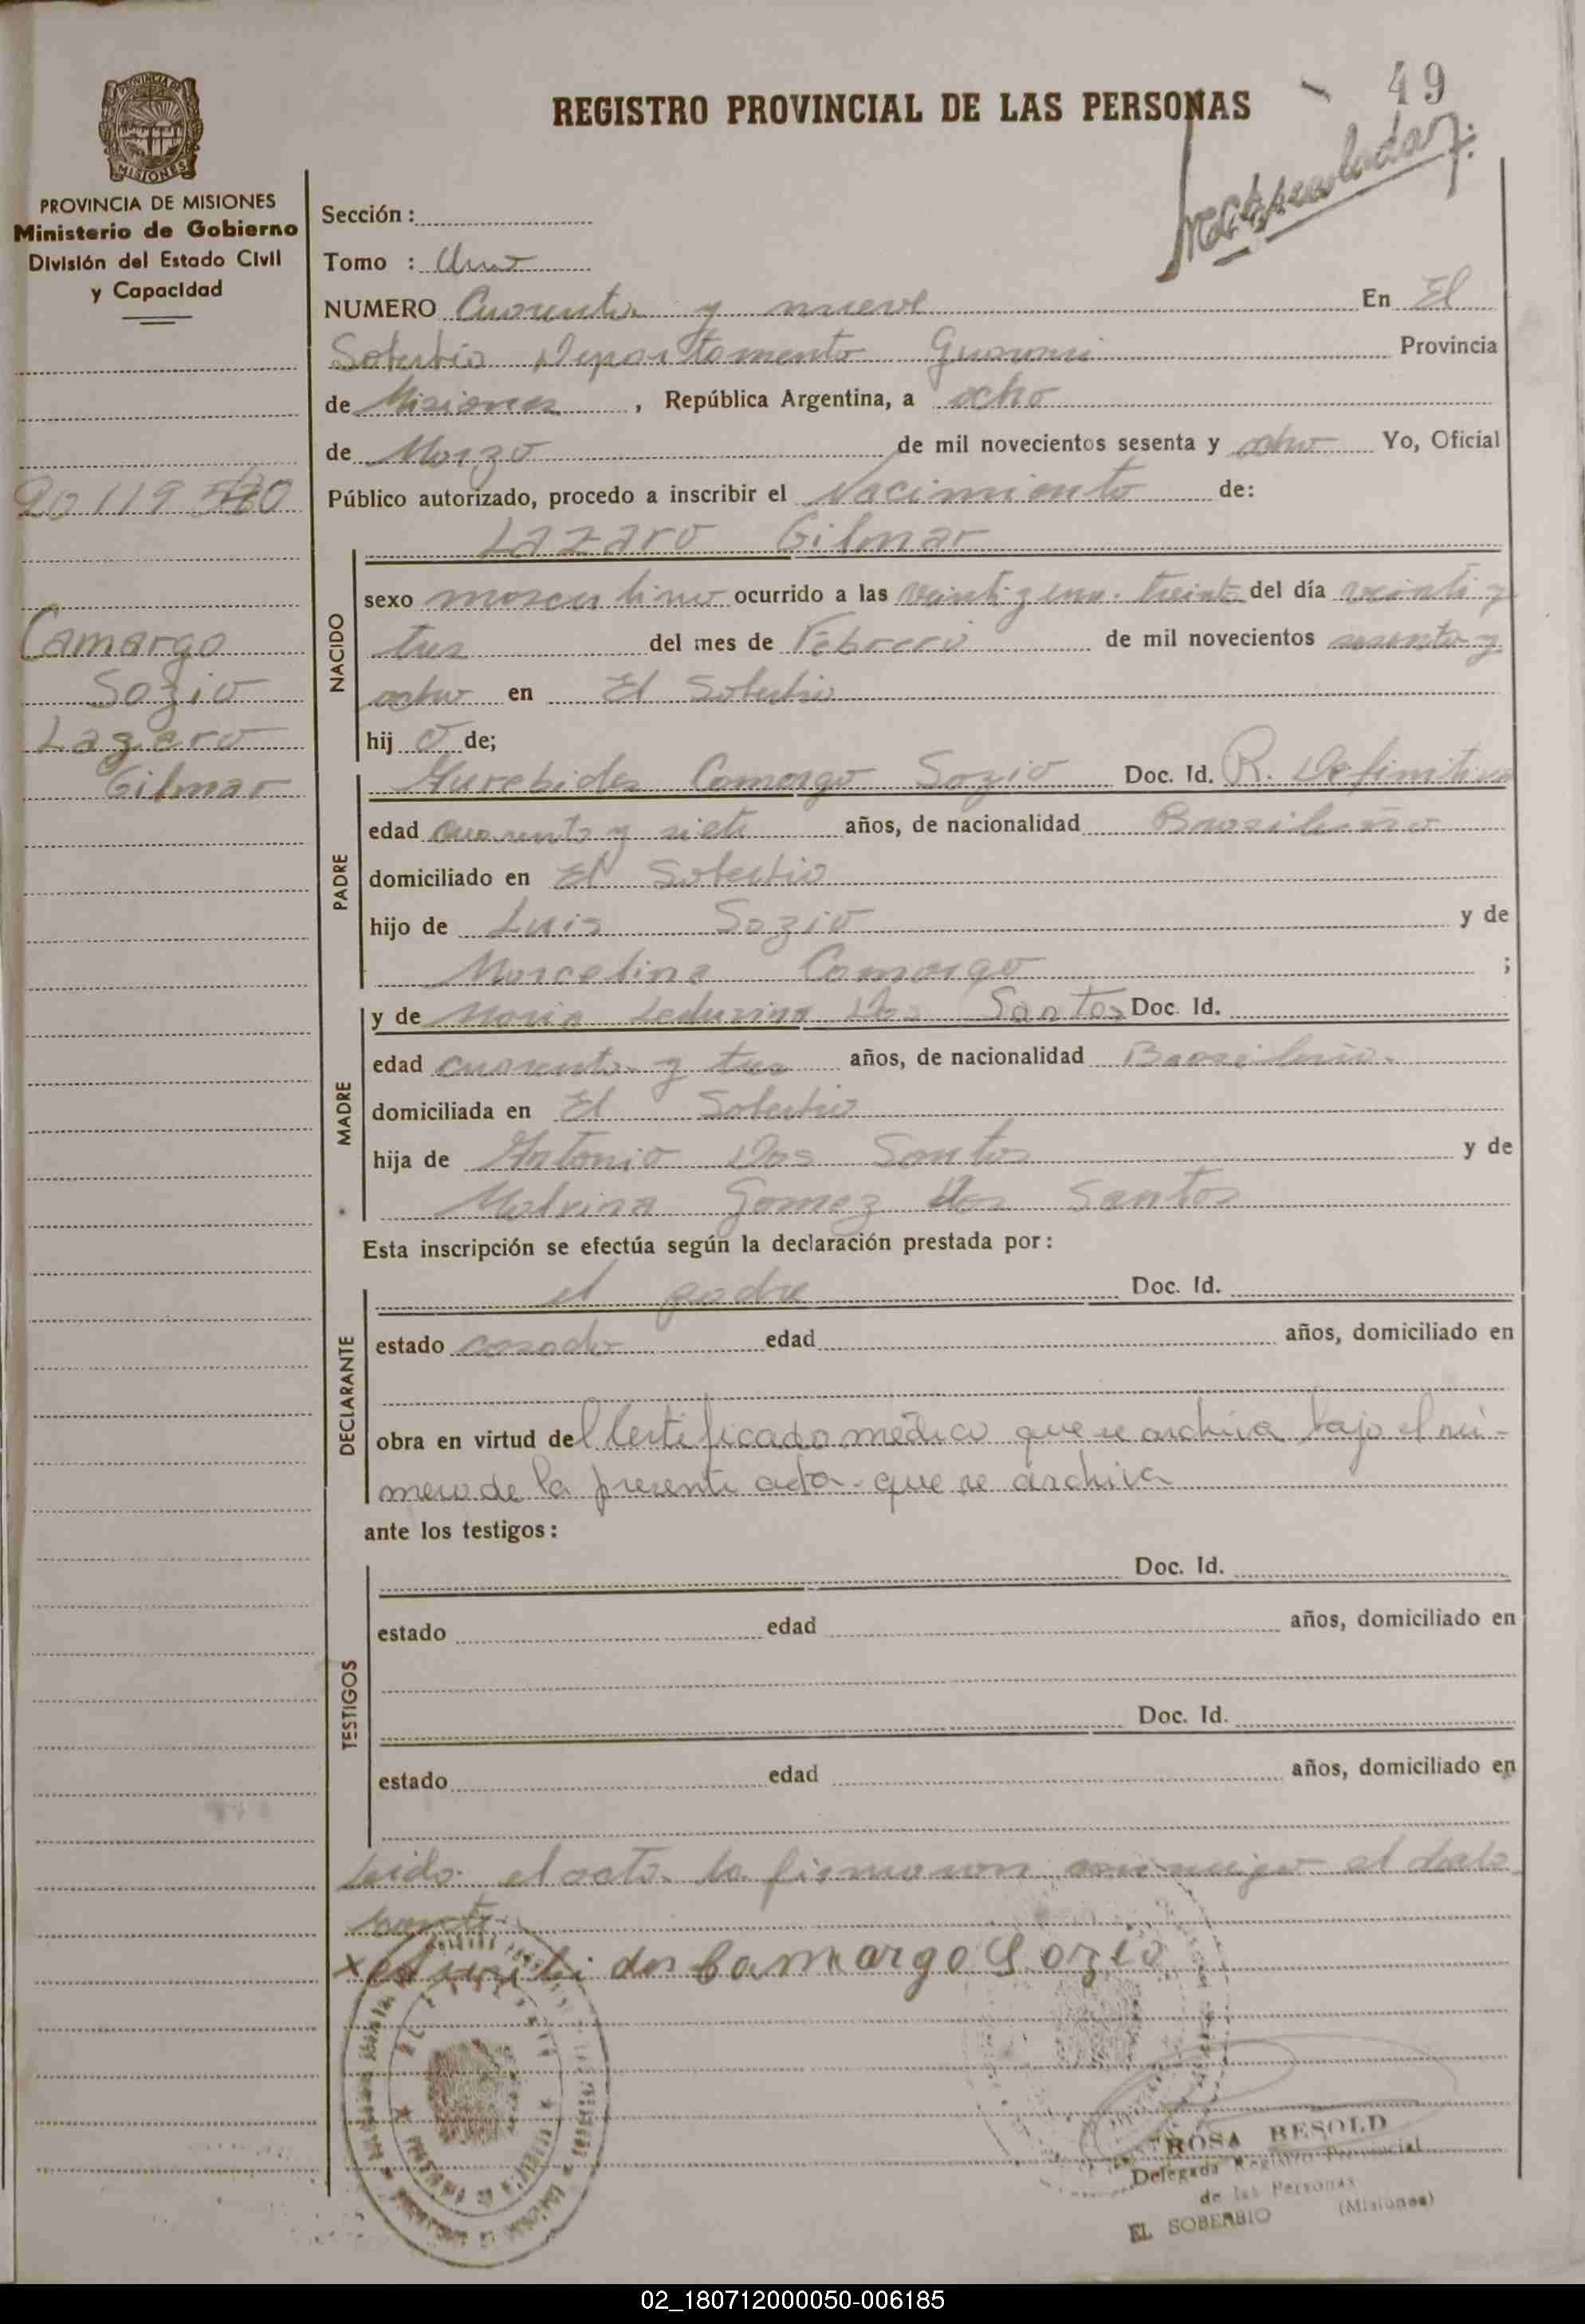 49
REGISTRO PROVINCIAL DE LAS PERSONAS
PROVINCIA DE MISIONES
Ministerio de Gobierno
División del Estado Civil
y Capacidad
Sección :
Tomo : Uno
NUMERO Cuarenta y nueve En El
Soberbio Departamento Guarani Provincia
de Misiones , República Argentina, a ocho
de Marzo de mil novecientos sesenta y ocho Yo, Oficial
Público autorizado, procedo a inscribir el Nacimiento de:
Lazaro Gilmar
Camargo
Sozio
Lazaro
Gilmar
NACIDO
sexo masculino ocurrido a las veinti y una treinta del día veinti y
tres del mes de Febrero de mil novecientos sesenta y
ocho en El Soberbio
hij o de;
PADRE
Camargo Sozio Doc. Id. R. Definitiva
edad cuarenta y siete años, de nacionalidad Brasileño
domiciliado en El Soberbio
hijo de Luis Sozio y de
Marcelina Camargo ;
MADRE
y de Maria Dos Santos Doc. Id.
edad cuarenta y tres años, de nacionalidad Brasileña
domiciliada en El Soberbio
hija de Antonio Dos Santos y de
Malvina Gomez dos Santos
Esta inscripción se efectúa según la declaración prestada por:
DECLARANTE
el padre Doc. Id.
estado casado edad años, domiciliado en
obra en virtud del Certificado médico que se archiva bajo el nú-
mero de la presente acta - que se archiva
ante los testigos:
TESTIGOS
Doc. Id.
estado edad años, domiciliado en
Doc. Id.
estado edad años, domiciliado en
Leida el acta la firmaron conmigo el decla
rante
Camargo Sozio
ROSA BESOLD
Delegada Registro Provincial
de las Personas
EL SOBERBIO (Misiones)
02_180712000050-006185